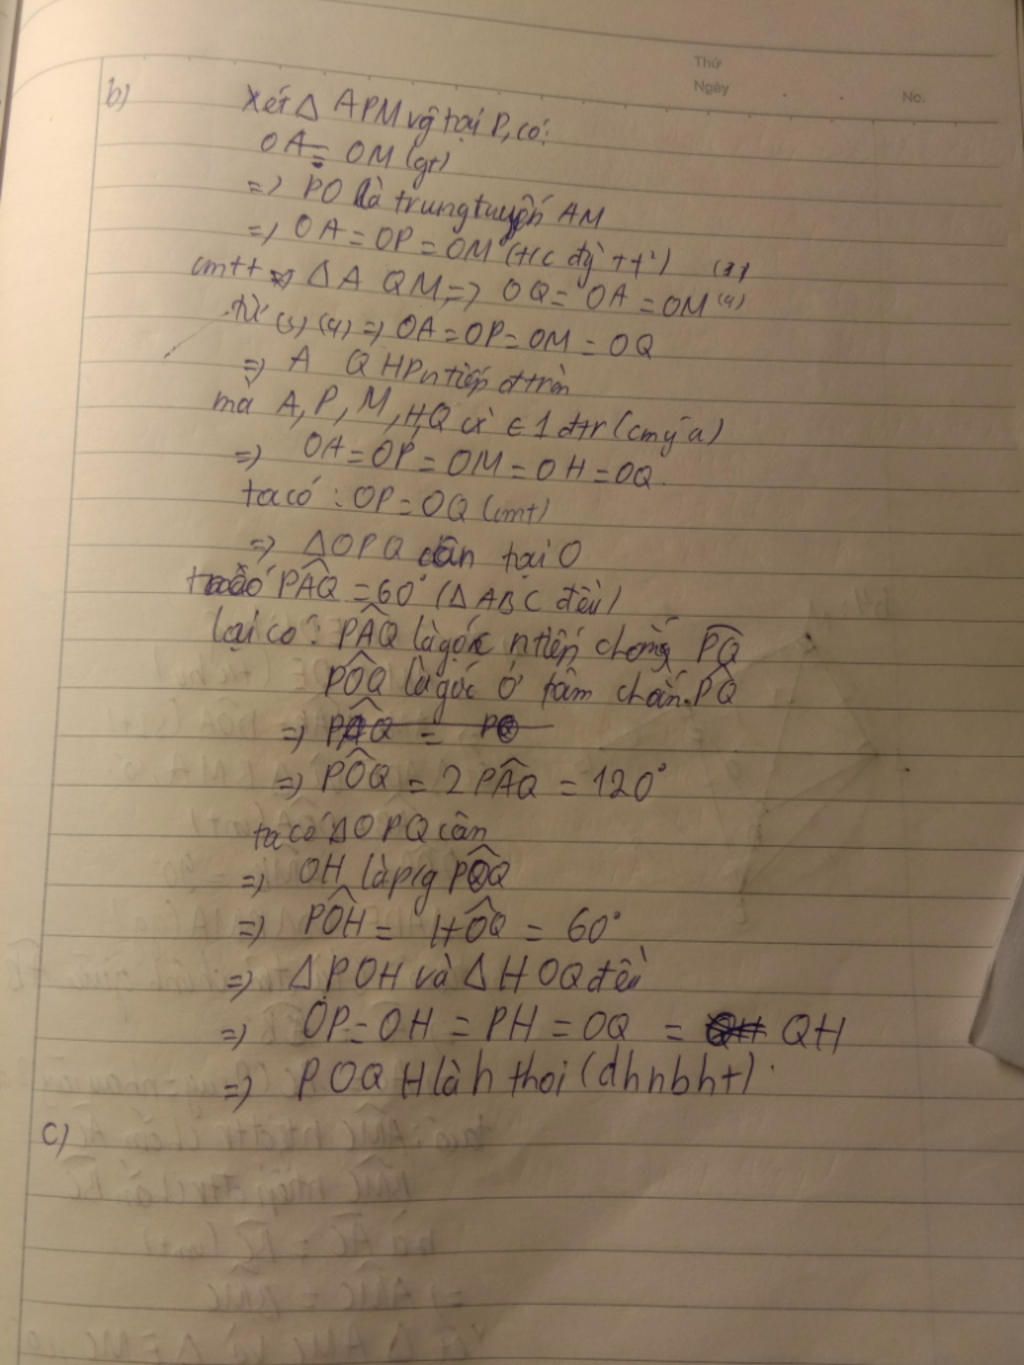 Thứ
Ngày
No.
b)
Xét △ APM vg tại P, có:
OA = OM (gt)
=> PO là trung tuyến AM
=> OA = OP = OM (t/c đg ttº) (3)
cmtt △ A QM => OQ = OA = OM (4)
từ (3) (4) => OA = OP = OM = OQ
=> A Q HP n tiếp đ tròn
mà A, P, M, H, Q cx ∈ 1 đtr (cm ý a)
=> OA = OP = OM = OH = OQ
ta có : OP = OQ (cmt)
=> △OPQ cân tại O
ta có PÂQ = 60° (△ ABC đều)
lại có : PÂQ là góc n tiếp chắn PQ
PÔQ là góc ở tâm chắn PQ
=> PÂQ = PQ
=> PÔQ = 2 PÂQ = 120°
ta có △OPQ cân
=> OH là p/g PÔQ
=> PÔH = HÔQ = 60°
=> △ POH và △ HOQ đều
=> OP = OH = PH = OQ = QH
=> POQH là h thoi (dhnbht)
c)